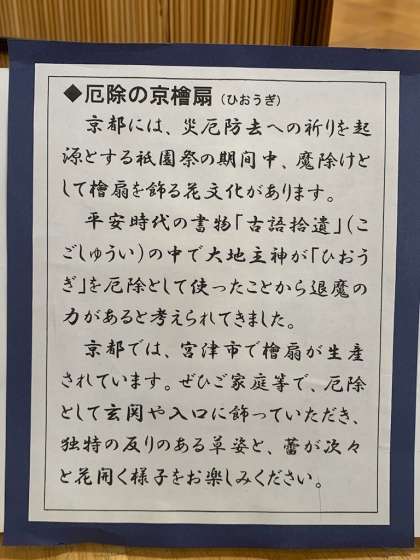 ◆厄除の京檜扇（ひおうぎ）
京都には、災厄防去への祈りを起
源とする祇園祭の期間中、魔除けと
して檜扇を飾る花文化があります。
平安時代の書物「古語拾遺」（こ
ごしゅうい）の中で大地主神が「ひおう
ぎ」を厄除として使ったことから退魔の
力があると考えられてきました。
京都では、宮津市で檜扇が生産
されています。ぜひご家庭等で、厄除
として玄関や入口に飾っていただき、
独特の反りのある草姿と、蕾が次々
と花開く様子をお楽しみください。